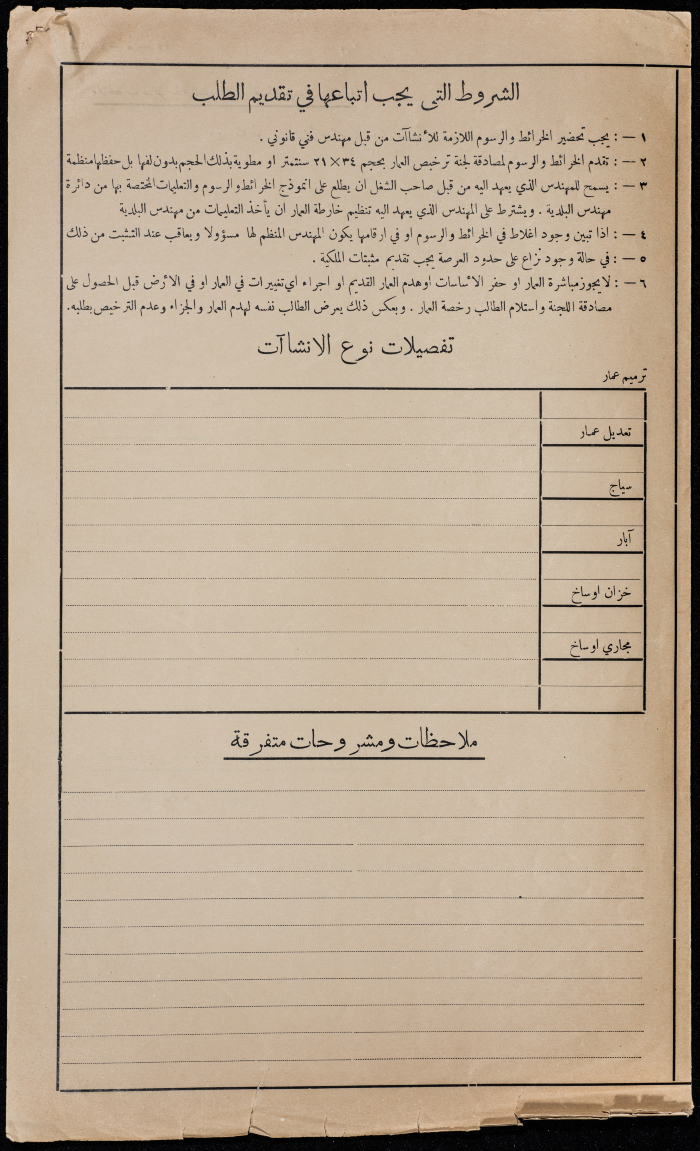 الشروط التى يجب اتباعها في تقديم الطلب
١ — : يجب تحضير الخرائط والرسوم اللازمة للأنشاآت من قبل مهندس فني قانوني .
٢ — : تقدم الخرائط والرسوم لمصادقة لجنة ترخيص العمار بحجم ٣٤×٢١ سنتمتر او مطوية بذلك الحجم بدون لفها بل حفظها منظمة
٣ — : يسمح للمهندس الذي يعهد اليه من قبل صاحب الشغل ان يطلع على انموذج الخرائط والرسوم والتعليمات المختصة بها من دائرة
مهندس البلدية . ويشترط على المهندس الذي يعهد اليه تنظيم خارطة العمار ان يأخذ التعليمات من مهندس البلدية
٤ — : اذا تبين وجود اغلاط في الخرائط والرسوم او في ارقامها يكون المهندس المنظم لها مسؤولا ويعاقب عند التثبت من ذلك
٥ — : في حالة وجود نزاع على حدود العرصة يجب تقديم مثبتات الملكية .
٦ — : لايجوز مباشرة العمار او حفر الاساسات اوهدم العمار القديم او اجراء اي تغييرات في العمار او في الارض قبل الحصول على
مصادقة اللجنة واستلام الطالب رخصة العمار . وبعكس ذلك يعرض الطالب نفسه لهدم العمار والجزاء وعدم الترخيص بطلبه.
تفصيلات نوع الانشاآت
ترميم عمار
تعديل عمار
سياج
آبار
خزان اوساخ
مجاري اوساخ
ملاحظات ومشروحات متفرقة